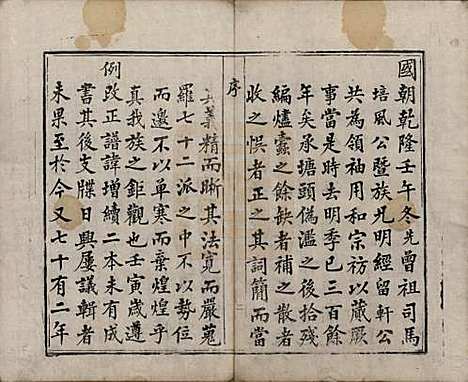 國朝乾隆壬午冬先曾祖司馬
培風公暨族兄明經留軒公
共為領袖用和宗祊以蕆厥
事當是時去明季已三百餘
年矣承塘頭偽濫之後拾殘
編燼蠹之餘缺者補之散者
收之悞者正之其詞簡而當
序
其義精而晰其法寬而嚴蒐
羅七十二派之中不以勢位
而邊不以單寒而棄煌煌乎
真我族之鉅觀也壬寅歲遵
例
改正譜諱增續二本未有成
書其後支牒日興屢議輯者
未果至於今又七十有二年